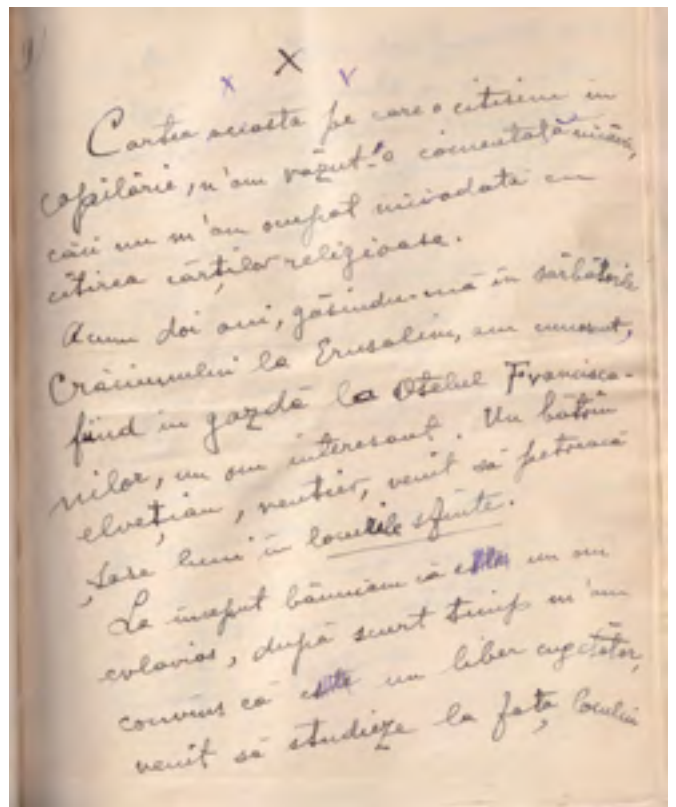 x X v
Cartea aceasta pe care o citisem in
copilărie, n'am văzut-o comentată nicăeri,
căci nu m'am ocupat niciodata cu
citirea cărților religioase.
Acum doi ani, găsindu-mă în sărbătorile
Crăciunului la Erusalim, am cunoscut,
fiind in gazdă la Otelul Francisca-
nilor, un om interesant. Un bătrîn
elvețian, rentier, venit să petreacă
șase luni in locurile sfinte.
La inceput bănuiam că un om
evlavios, după scurt timp m'am
convins că este un liber cugetător,
venit să studieze la fața locului